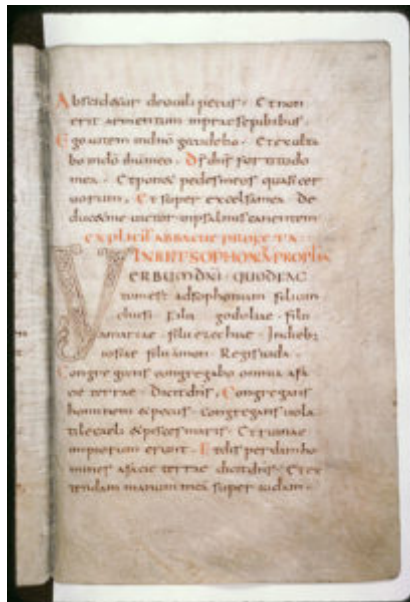 Abscidetur de ouili pecus. Et non
erit armentum in praesepibibus.
Ego autem in dnō gaudebo. Et exulta
bo in dō ihu meo. Ds dns fortitudo
mea. Et ponet pedes meos quasi cer
uorum. Et super excelsa mea de
ducet me uictor in psalmis canentem
EXPLICIT ABBACUC PROPETA
INCIPIT SOPHONIA PROPHA
VERBUM DNI QUOD FAC
tum est ad sophoniam filium
chusi filii godoliae. filii
amariae. filii ezechiae. In dieb;
iosiae filii amon. Regis iuda.
Congregans congregabo omnia a fa
cie terrae. Dicit dns. Congregans
hominem & pecus. Congregans uola
tile caeli & pisces maris. Et ruinae
impiorum erunt. Et disperdam ho
mines a facie terrae dicit dns. Et ex
tendam manum meā super iudam.